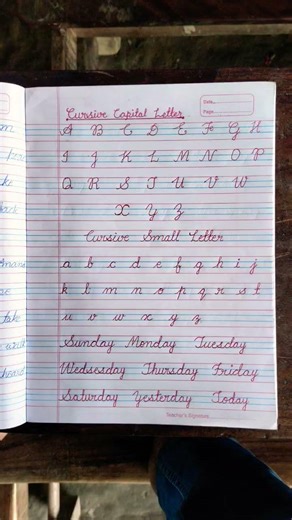 Date
Page
Cursive Capital Letter
A B C D E F G H
I J K L M N O P
Q R S T U V W
X Y Z
Cursive Small Letter
a b c d e f g h i j
k l m n o p q r s t
u v w x y z
Sunday Monday Tuesday
Wedsesday Thursday Friday
Saturday Yesterday Today
Teacher's Signature